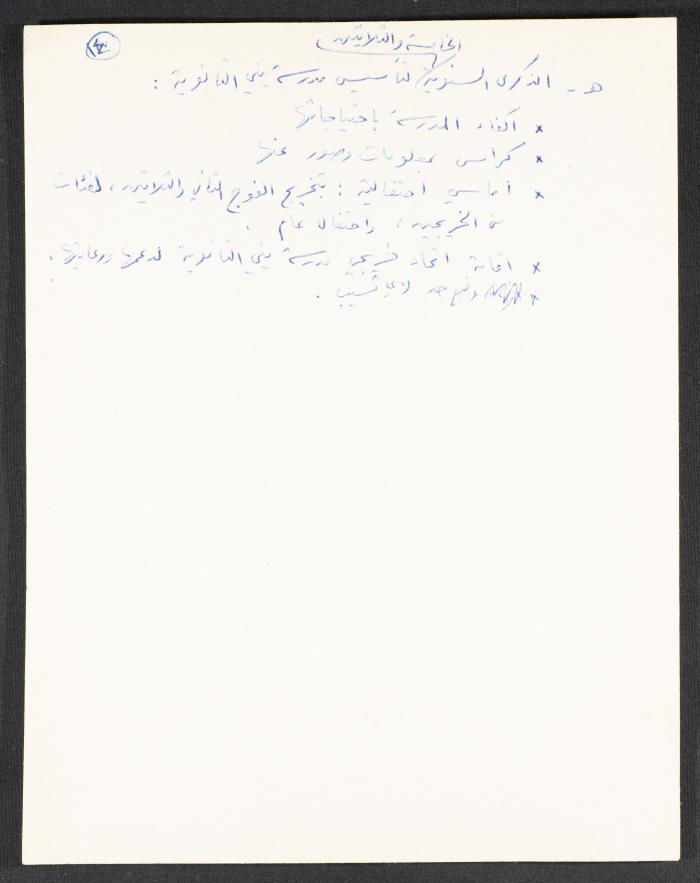 ٤
الخامسة والثلاثين
هـ - الذكرى السنوية لتأسيس مدرسة يني الثانوية :
× اكفاء المدرسة باحتياجاتها
× كراس بمعلومات وصور عنها
× اماسي احتفالية : بتخريج الفوج الثاني والثلاثين، لفئات
من الخريجين، واحتفال عام .
× اقامة اتحاد خريجي مدرسة يني الثانوية لدعمها ورعايتها .
× وضع حد لاي تسيب .